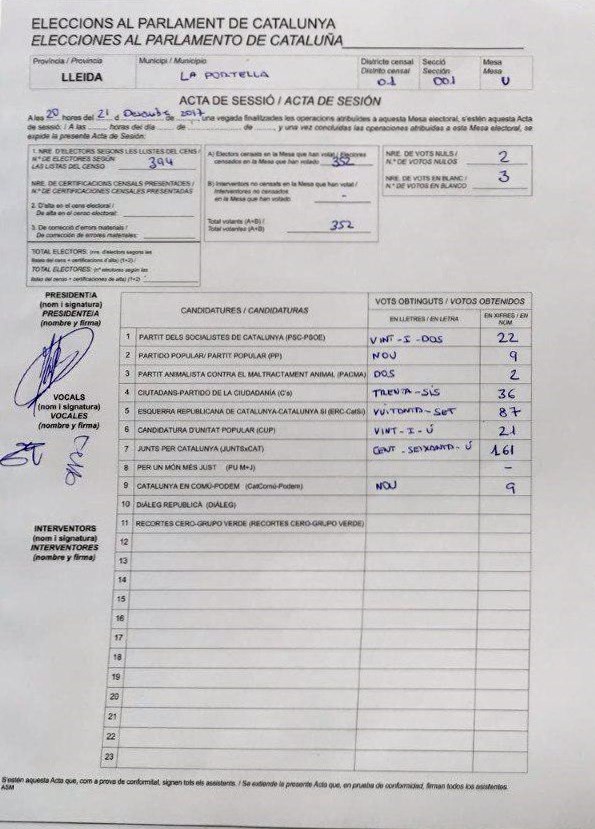 ELECCIONS AL PARLAMENT DE CATALUNYA
ELECCIONES AL PARLAMENTO DE CATALUÑA
Província / Provincia Municipi / Municipio Districte censal Secció Mesa
Distrito censal Sección Mesa
LLEIDA LA PORTELLA 01 001 U
ACTA DE SESSIÓ / ACTA DE SESIÓN
A les 20 hores del 21 d Desembre 2017 de una vegada finalitzades les operacions atribuïdes a aquesta Mesa electoral, s'estén aquesta Acta
de sessió. / A las horas del día de de , y una vez concluidas las operaciones atribuidas a esta Mesa electoral, se
expide la presente Acta de Sesión:
1. NRE. D'ELECTORS SEGONS LES LLISTES DEL CENS /
N.º DE ELECTORES SEGÚN
LAS LISTAS DEL CENSO 394
NRE. DE CERTIFICACIONS CENSALS PRESENTADES /
N.º DE CERTIFICACIONES CENSALES PRESENTADAS
2. D'alta en el cens electoral /
De alta en el censo electoral:
3. De correcció d'errors materials /
De corrección de errores materiales:
TOTAL ELECTORS: (nre. d'electors segons les
llistes del cens + certificacions d'alta) (1+2) /
TOTAL ELECTORES: (nº electores según las
listas del censo + certificaciones de alta) (1+2)
A) Electors censats en la Mesa que han votat / Electores
censados en la Mesa que han votado 352
B) Interventors no censats en la Mesa que han votat /
Interventores no censados
en la Mesa que han votado -
Total votants (A+B) /
Total votantes (A+B) 352
NRE. DE VOTS NULS /
N.º DE VOTOS NULOS 2
NRE. DE VOTS EN BLANC /
N.º DE VOTOS EN BLANCO 3
PRESIDENT/A
(nom i signatura)
PRESIDENTE/A
(nombre y firma)
VOCALS
(nom i signatura)
VOCALES
(nombre y firma)
INTERVENTORS
(nom i signatura)
INTERVENTORES
(nombre y firma)
CANDIDATURES / CANDIDATURAS VOTS OBTINGUTS / VOTOS OBTENIDOS
EN LLETRES / EN LETRA EN XIFRES / EN NÚM.
1 PARTIT DELS SOCIALISTES DE CATALUNYA (PSC-PSOE) VINT-I-DOS 22
2 PARTIDO POPULAR/ PARTIT POPULAR (PP) NOU 9
3 PARTIT ANIMALISTA CONTRA EL MALTRACTAMENT ANIMAL (PACMA) DOS 2
4 CIUTADANS-PARTIDO DE LA CIUDADANÍA (C's) TRENTA-SIS 36
5 ESQUERRA REPUBLICANA DE CATALUNYA-CATALUNYA SÍ (ERC-CatSí) VUITANTA-SET 87
6 CANDIDATURA D'UNITAT POPULAR (CUP) VINT-I-Ú 21
7 JUNTS PER CATALUNYA (JUNTSxCAT) CENT-SEIXANTA-Ú 161
8 PER UN MÓN MÉS JUST (PU M+J) -
9 CATALUNYA EN COMÚ-PODEM (CatComú-Podem) NOU 9
10 DIÀLEG REPUBLICÀ (DIÀLEG)
11 RECORTES CERO-GRUPO VERDE (RECORTES CERO-GRUPO VERDE)
12
13
14
15
16
17
18
19
20
21
22
23
S'estén aquesta Acta que, com a prova de conformitat, signen tots els assistents. / Se extiende la presente Acta que, en prueba de conformidad, firman todos los asistentes.
ASM